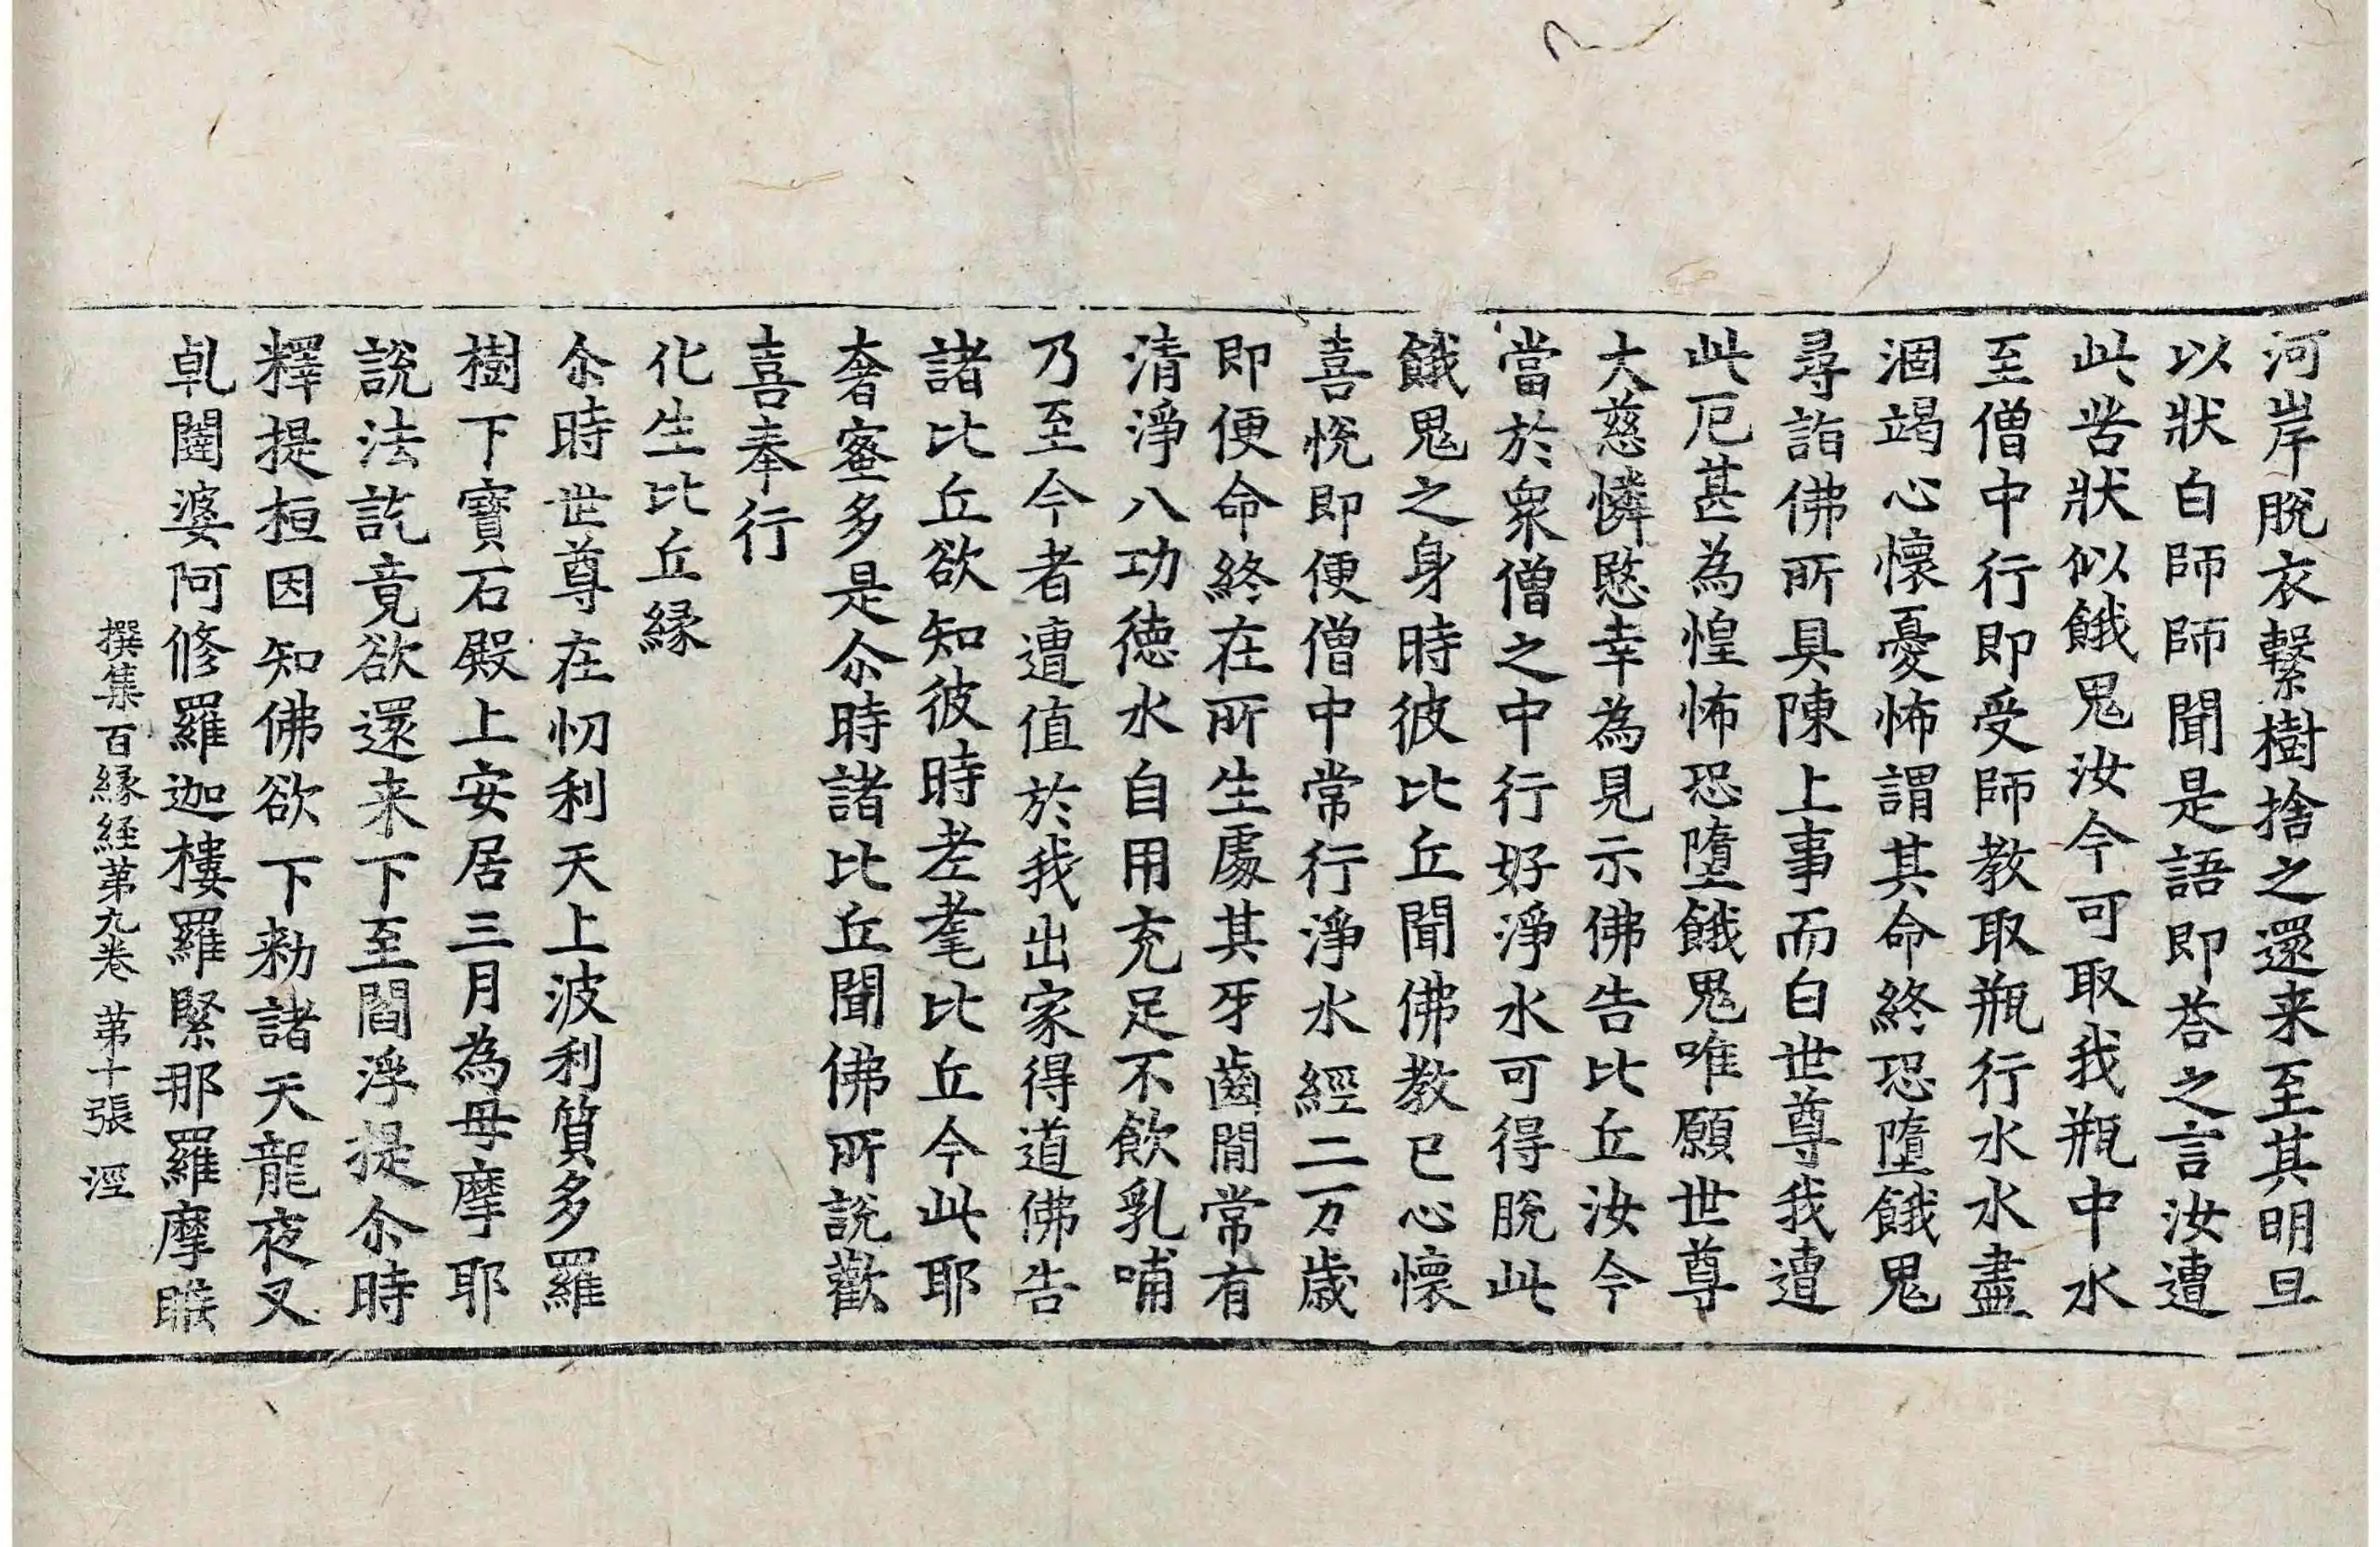 河岸脫衣繫樹捨之還来至其明旦
以狀白師師聞是語即荅之言汝遭
此苦狀似餓鬼汝今可取我瓶中水
至僧中行即受師教取瓶行水水盡
涸竭心懷憂怖謂其命終恐墮餓鬼
尋詣佛所具陳上事而白世尊我遭
此厄甚為惶怖恐墮餓鬼唯願世尊
大慈憐愍幸為見示佛告比丘汝今
當於衆僧之中行好淨水可得脫此
餓鬼之身時彼比丘聞佛教已心懷
喜悅即便僧中常行淨水經二万歲
即便命終在所生處其牙齒間常有
清淨八功德水自用充足不飲乳哺
乃至今者遭值於我出家得道佛告
諸比丘欲知彼時老耄比丘今此耶
奢蜜多是尒時諸比丘聞佛所說歡
喜奉行
化生比丘緣
尒時世尊在忉利天上波利質多羅
樹下寶石殿上安居三月為母摩耶
說法訖竟欲還来下至閻浮提尒時
釋提桓因知佛欲下勑諸天龍夜叉
乹闥婆阿修羅迦樓羅緊那羅摩睺
撰集百緣経苐九卷 苐十張 涇